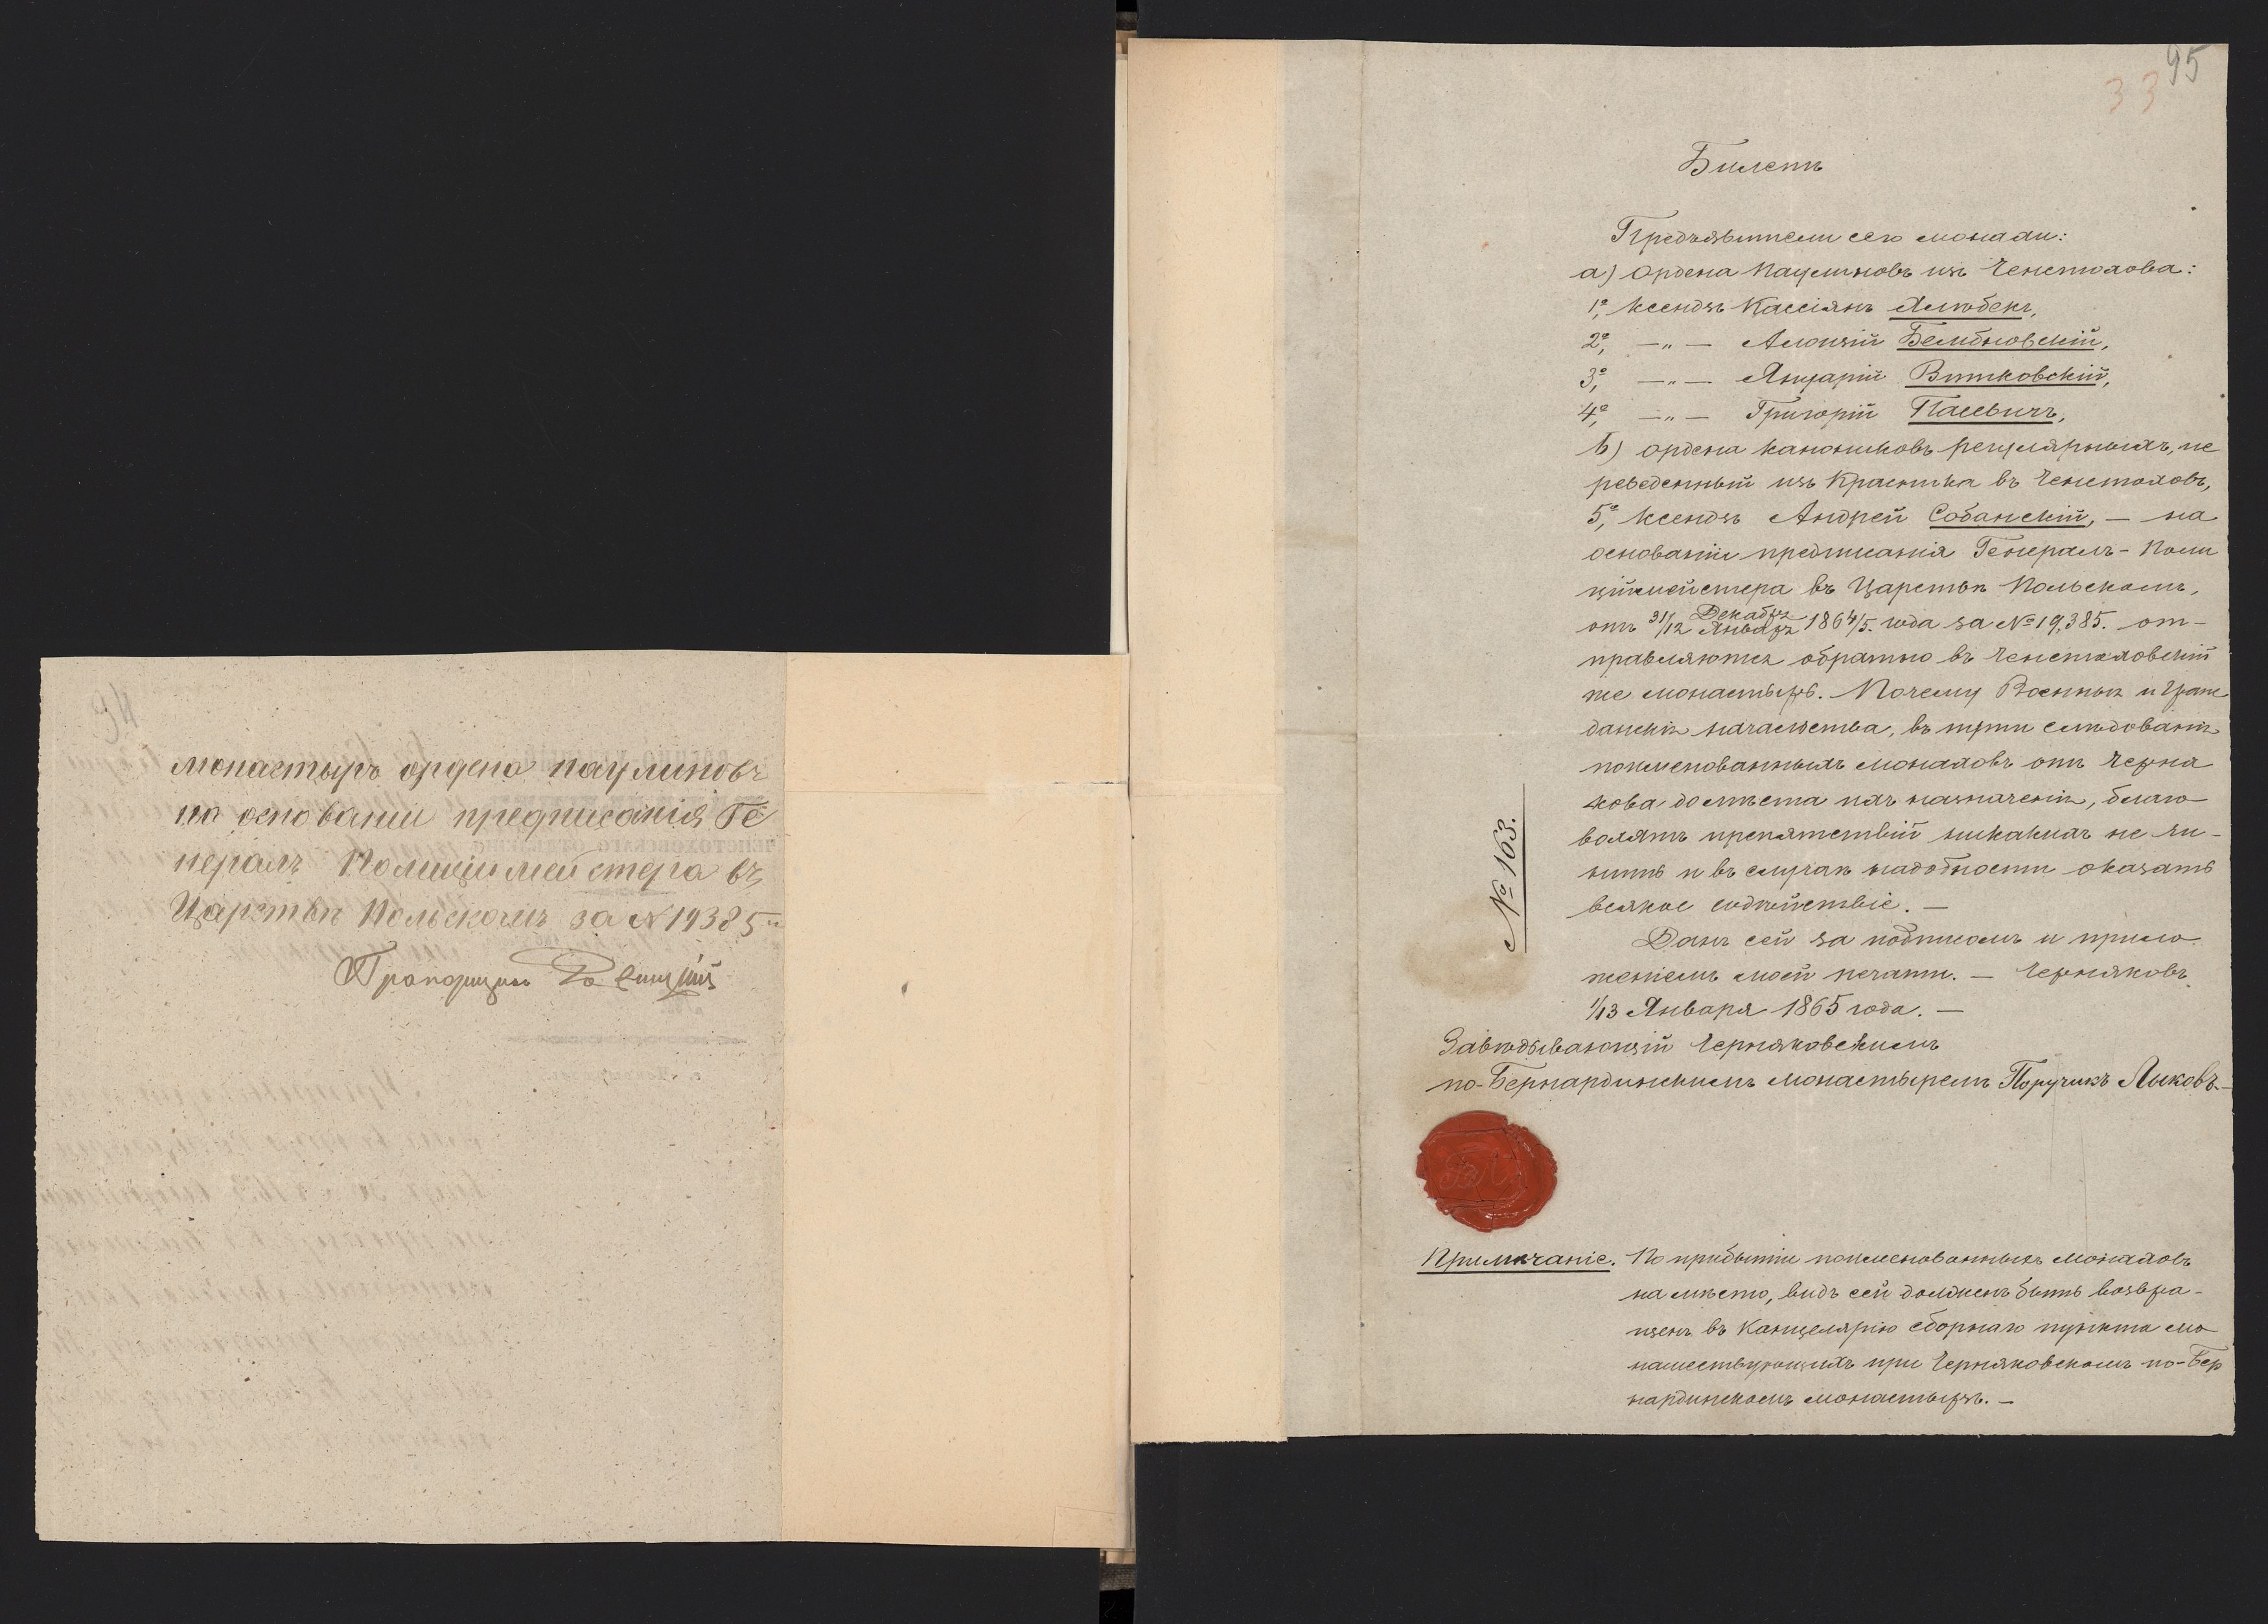 монастырь ордена паулиновъ
на основаніи предписанія Ге
нералъ Полиціймейстера въ
Царствѣ Польскомъ за №19385
Прапорщикъ
95
33
Билетъ
Предъявители сего монахи:
а) Ордена Паулиновъ изъ Ченстохова:
1е, Ксендзъ Кассіянъ
2е, —„— Алоизій Бембновскій,
3е, —„— Януарій Витковскій,
4е, —„— Григорій Пасевичъ,
б) Ордена канониковъ регулярныхъ, пе
реведенный изъ Красника въ Ченстоховъ,
5е, Ксендзъ Андрей Собанскій, — на
основаніи предписанія Генералъ-Поли
ціймейстера въ Царствѣ Польскомъ,
отъ 31/12 Декабря/Января 1864/5. года за №19,385. от-
правляются обратно въ Ченстоховскій
же монастырь. Почему Военныя и Граж
данскія начальства, въ пути слѣдованія
поименованныхъ монаховъ отъ Черня
кова до мѣста ихъ назначенія, благо
волятъ препятствій никакихъ не чи-
нить и въ случаѣ надобности оказать
всякое содѣйствіе. —
Данъ сей за подписомъ и прило
женіемъ моей печати. — Черняковъ
1/13 Января 1865 года. —
№ 163.
Завѣдывающій Черняковскимъ
по-Бернардинскимъ монастыремъ Поручикъ Лыковъ.
Примѣчаніе. По прибытіи поименованныхъ монаховъ
на мѣсто, видъ сей долженъ быть возвра-
щенъ въ Канцелярію сборнаго пункта мо
нашествующихъ при Черняковскомъ по-Бер
нардинскомъ монастырѣ. —